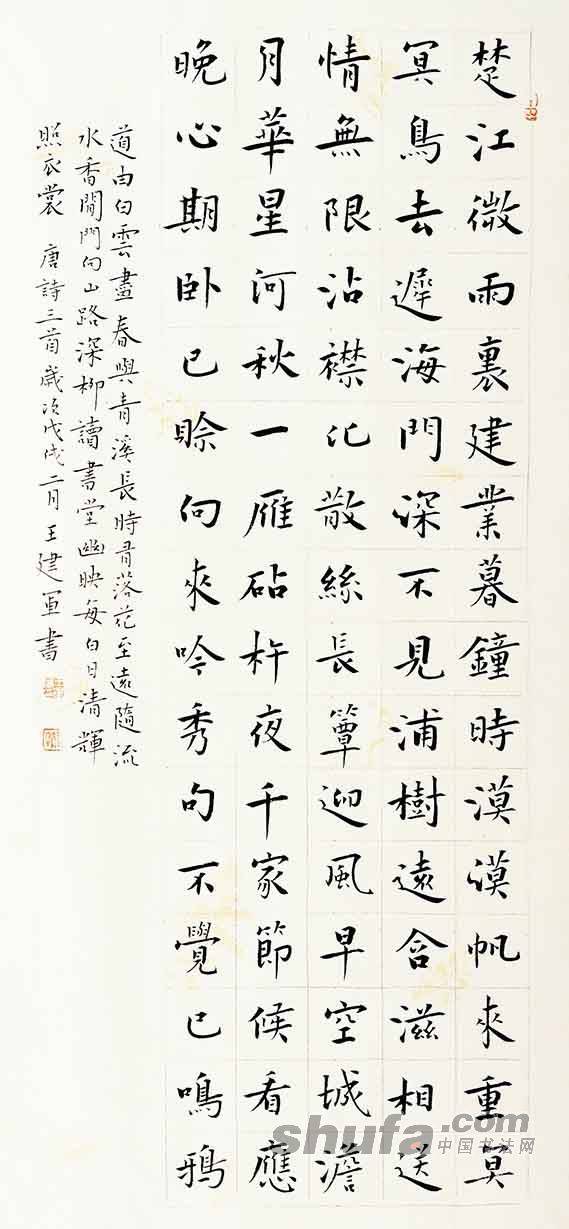 楚江微雨裏建業暮鐘時漠漠帆來重冥
冥鳥去遲海門深不見浦樹遠含滋相送
情無限沾襟比散絲長簟迎風早空城澹
月華星河秋一雁砧杵夜千家節候看應
晚心期卧已賒向來吟秀句不覺已鳴鴉
道由白雲盡春與青溪長時有落花至遠隨流
水香閒門向山路深柳讀書堂幽映每白日清輝
照衣裳 唐詩三首歲次戊戌二月王建軍書
shufa.com
中国书法网